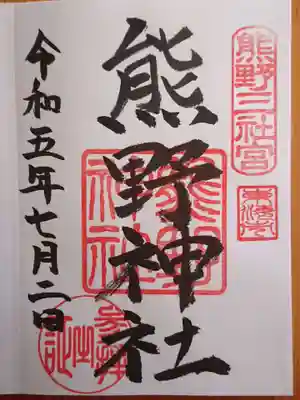 熊野三社宮
熊野神社
熊野神社
令和五年七月二日
参拝之証